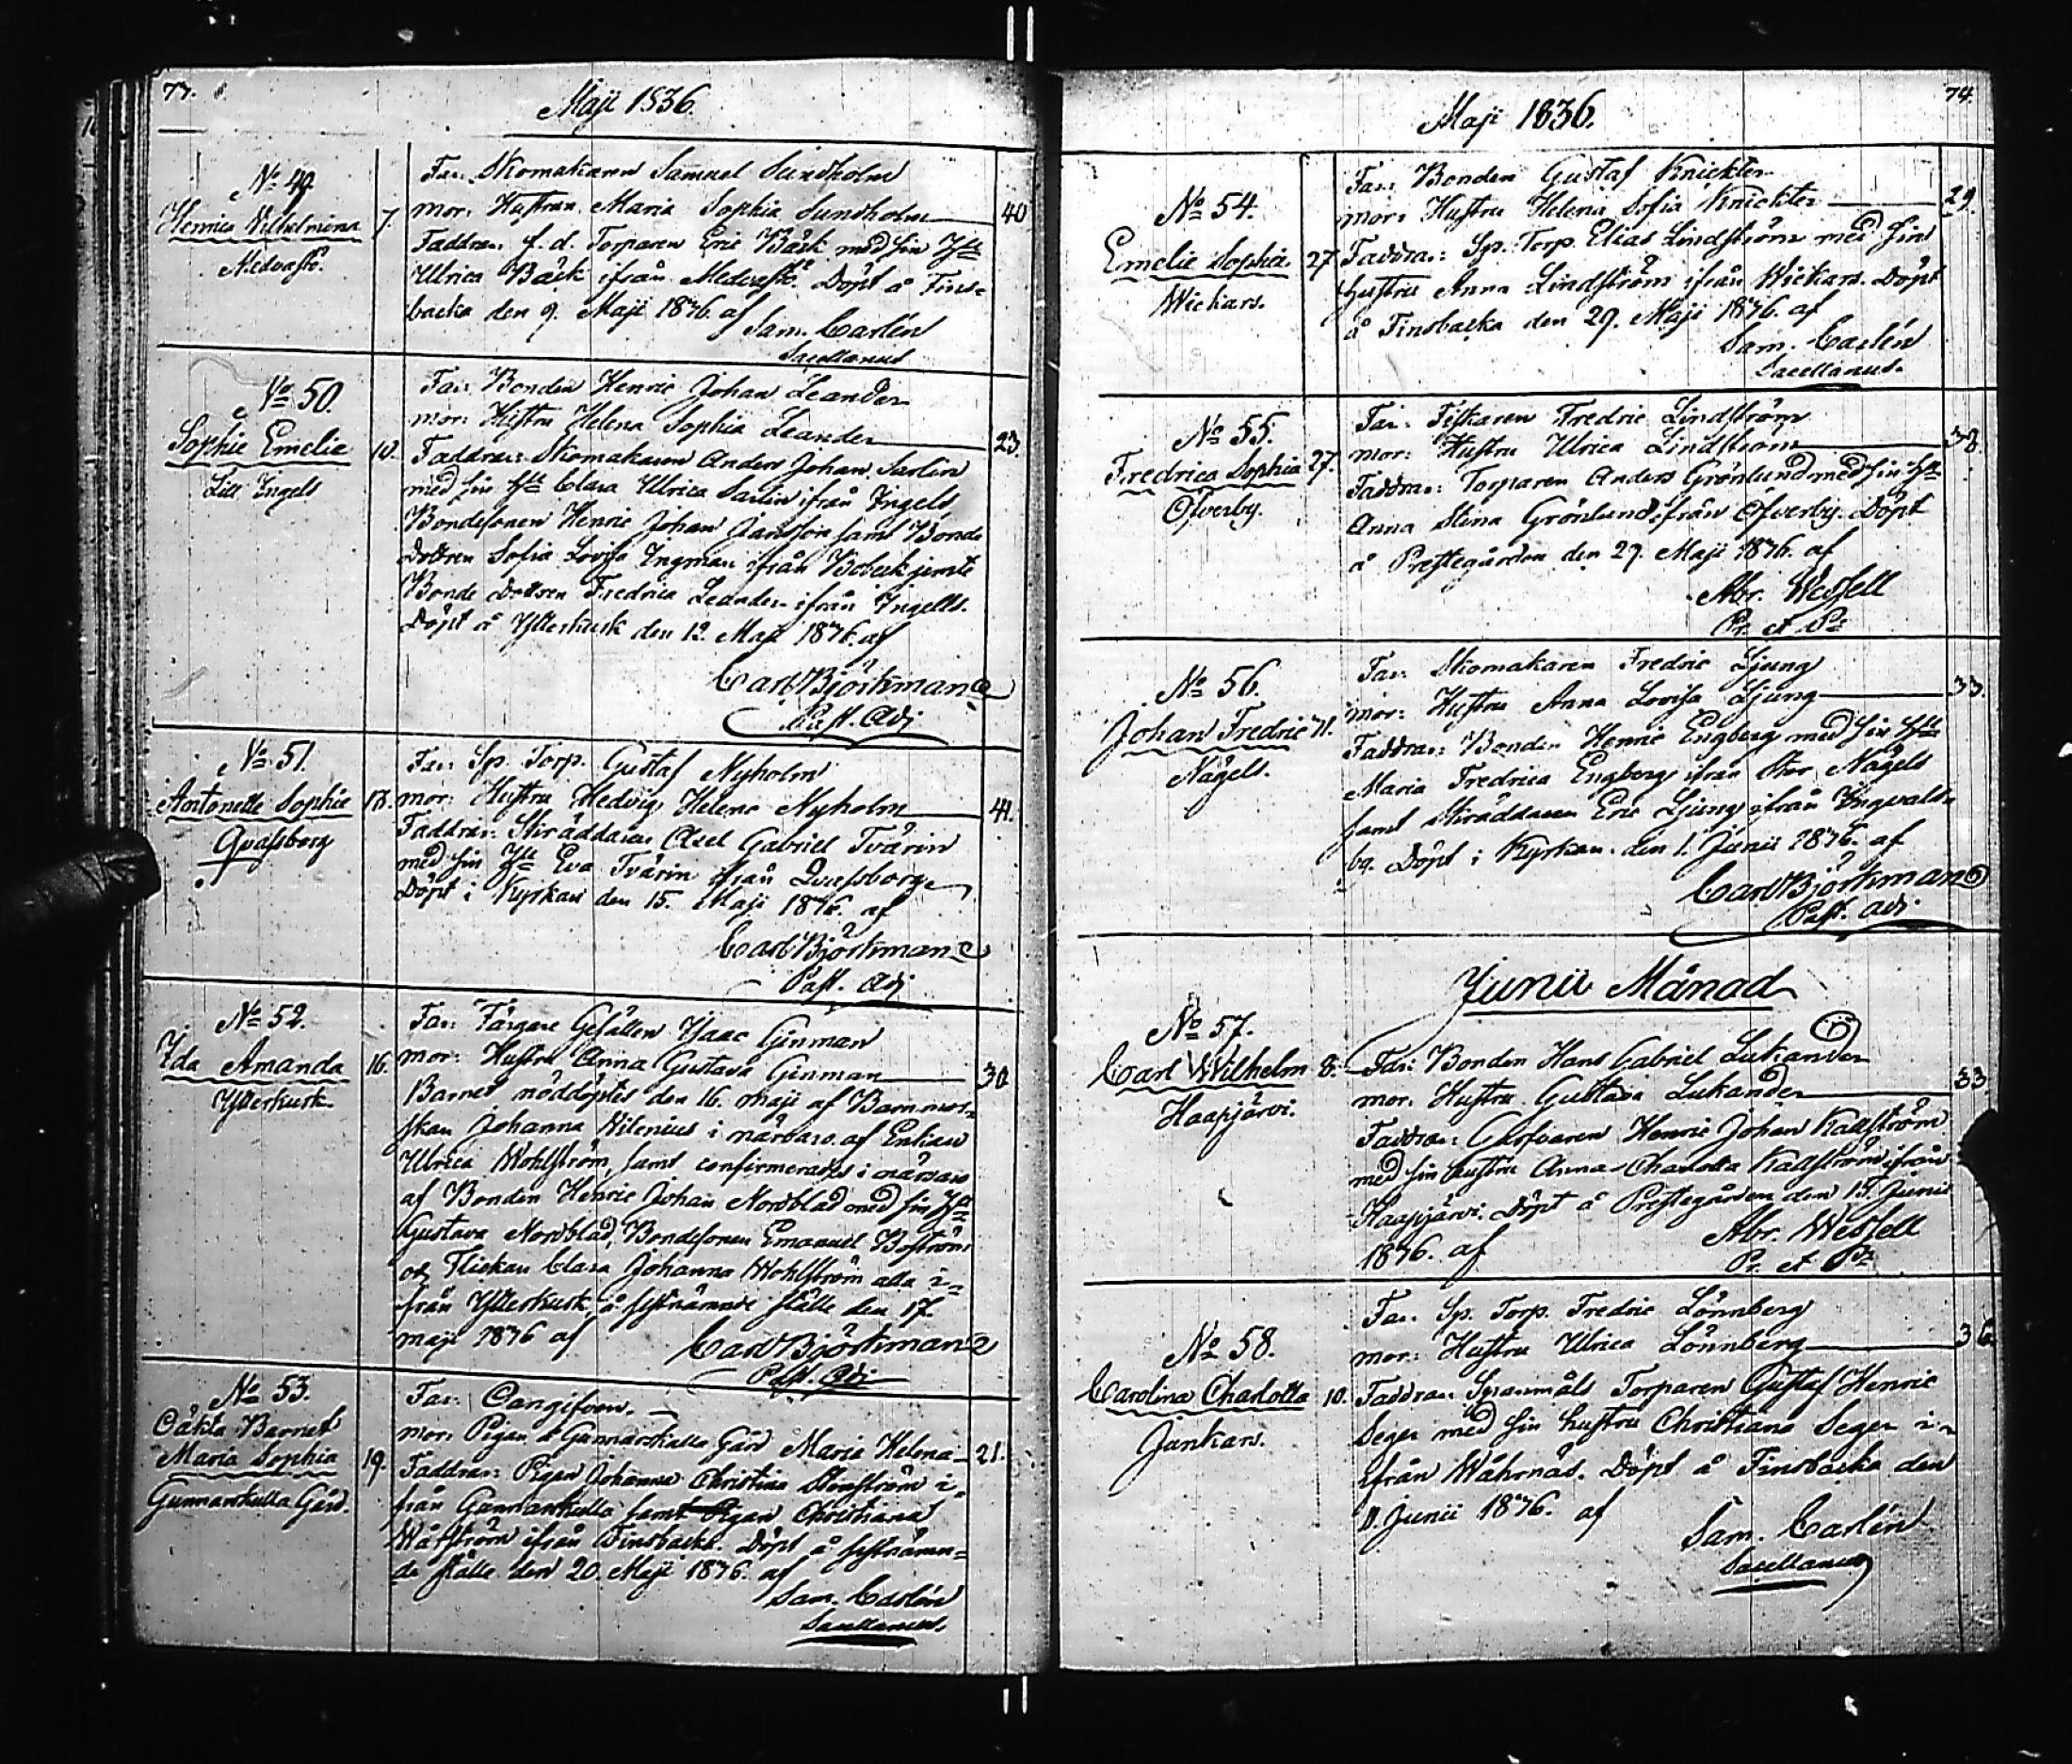 77.
Maji 1836.
No 49.
Henrica Wilhelmina
Medvastö.
7.
Far: Skomakaren Samuel Sundholm
mor: Hustrun Maria Sophia Sundholm
40
Faddrar: f. d. Torparen Eric Bäck med sin Hu
Ulrica Bäck ifrån Medvastö. Döpt å Fins-
backa den 9. Maji 1836. af
Sam. Carlén
Sacellanus
No 50.
Sophie Emelie
Lill Ingels
10.
Far: Bonden Henric Johan Leander
mor: Hustru Helena Sophia Leander
23.
Faddrar: Skomakaren Anders Johan Sarlin
med sin Hu Clara Ulrica Sarlin ifrån Ingels
Bondesonen Henric Johan Jansson samt Bonde
Dottren Sofia Lovisa Ingman ifrån Bobeck jemte
Bonde Dottren Fredrica Leander ifrån Ingells.
Döpt å Ytterkurk den 12. Maji 1836. af
Carl Björkman
Past. Adj
No 51.
Antonette Sophie
Qvafsborg
13.
Far: Sp. Torp. Gustaf Nyholm
mor: Hustru Hedvig Helena Nyholm
41.
Faddrar: Skräddaren Axel Gabriel Tvärin
med sin Hu Eva Tvärin ifrån Qvafsborg
Döpt i Kyrkan den 15. Maji 1836. af
Carl Björkman
Past. Adj
No 52.
Ida Amanda
Ytterkurk.
16.
Far: Färgare Gesällen Isaac Ginman
mor: Hustru Anna Gustava Ginman
30.
Barnet nöddöptes den 16. Maji af Barnmor-
skan Johanna Nilenius i närvaro af Enkan
Ulrica Wohlström, samt confirmerades i närvaro
af Bonden Henric Johan Nordblad med sin Hu
Gustava Nordblad, Bondesonen Emanuel Boström
och Flickan Clara Johanna Wohlström alla i-
från Ytterkurk, å sistnämnde ställe den 17.
maji 1836 af
Carl Björkman
Past. Adj
No 53.
Oäkta Barnet
Maria Sophia
Gunnarskulla Gård.
19.
Far: Oangifven.
mor: Pigan å Gunnarskulla Gård Maria Helena
21.
Faddrar: Pigan Johanna Christina Stenström i-
från Gunnarskulla samt Pigan Christiana
Wåtström ifrån Finsbacka. Döpt å sistnämn-
de ställe den 20. Maji 1836. af
Sam. Carlén
Sacellanus.
74.
Maji 1836.
No 54.
Emelie Sophia.
Wickars.
27.
Far: Bonden Gustaf Knickter
mor: Hustru Helena Sofia Knickter
29.
Faddrar: Sp. Torp. Elias Lindström med sin
hustru Anna Lindström ifrån Wickars. Döpt
å Finsbacka den 29. Maji 1836. af
Sam. Carlén
Sacellanus.
No 55.
Fredrica Sophia
Öfverby.
27.
Far: Fiskaren Fredric Lindström
mor: Hustru Ulrica Lindström
38.
Faddrar: Torparen Anders Grönlund med sin Hu
Anna Stina Grönlund ifrån Öfverby. Döpt
å Prestegården den 29. Maji 1836. af
Abr. Wessell
Pr. et Pr
No 56.
Johan Fredric
Någels.
31.
Far: Skomakaren Fredric Ljung
mor: Hustru Anna Lovisa Ljung
33.
Faddrar: Bonden Henric Engberg med sin Hu
Maria Fredrica Engberg ifrån Stor Någels
samt Skräddaren Eric Ljung ifrån Ingvals-
by. Döpt i Kyrkan den 1. Junii 1836. af
Carl Björkman
Past. Adj.
Junii Månad
No 57.
Carl Wilhelm
Haapjärvi.
8.
Far: Bonden Hans Gabriel Lukander
mor: Hustru Gustava Lukander
33.
Faddrar: Garfvaren Henric Johan Kallström
med sin hustru Anna Charlotta Kallström ifrån
Haapjärvi. Döpt å Prestegården den 15. Junii
1836. af
Abr. Wessell
Pr. et Pr
No 58.
Carolina Charlotta
Junkars.
10.
Far: Sp. Torp. Fredric Lönnberg
mor: Hustru Ulrica Lönnberg
36
Faddrar: Spanmåls Torparen Gustaf Henric
Seger med sin hustru Christiana Seger i-
från Wåhrnäs. Döpt å Finsbacka den
11. Junii 1836. af
Sam. Carlén
Sacellanus